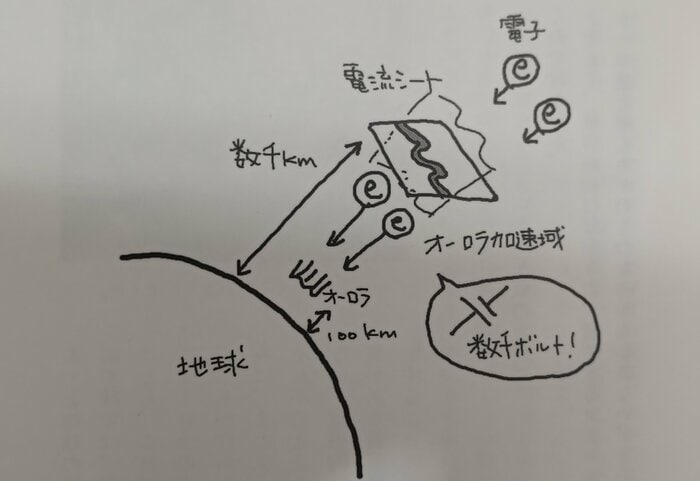 電子
e
e
電流シート
数千km
e
e
オーロラ加速域
オーロラ
100km
数千ボルト!
地球